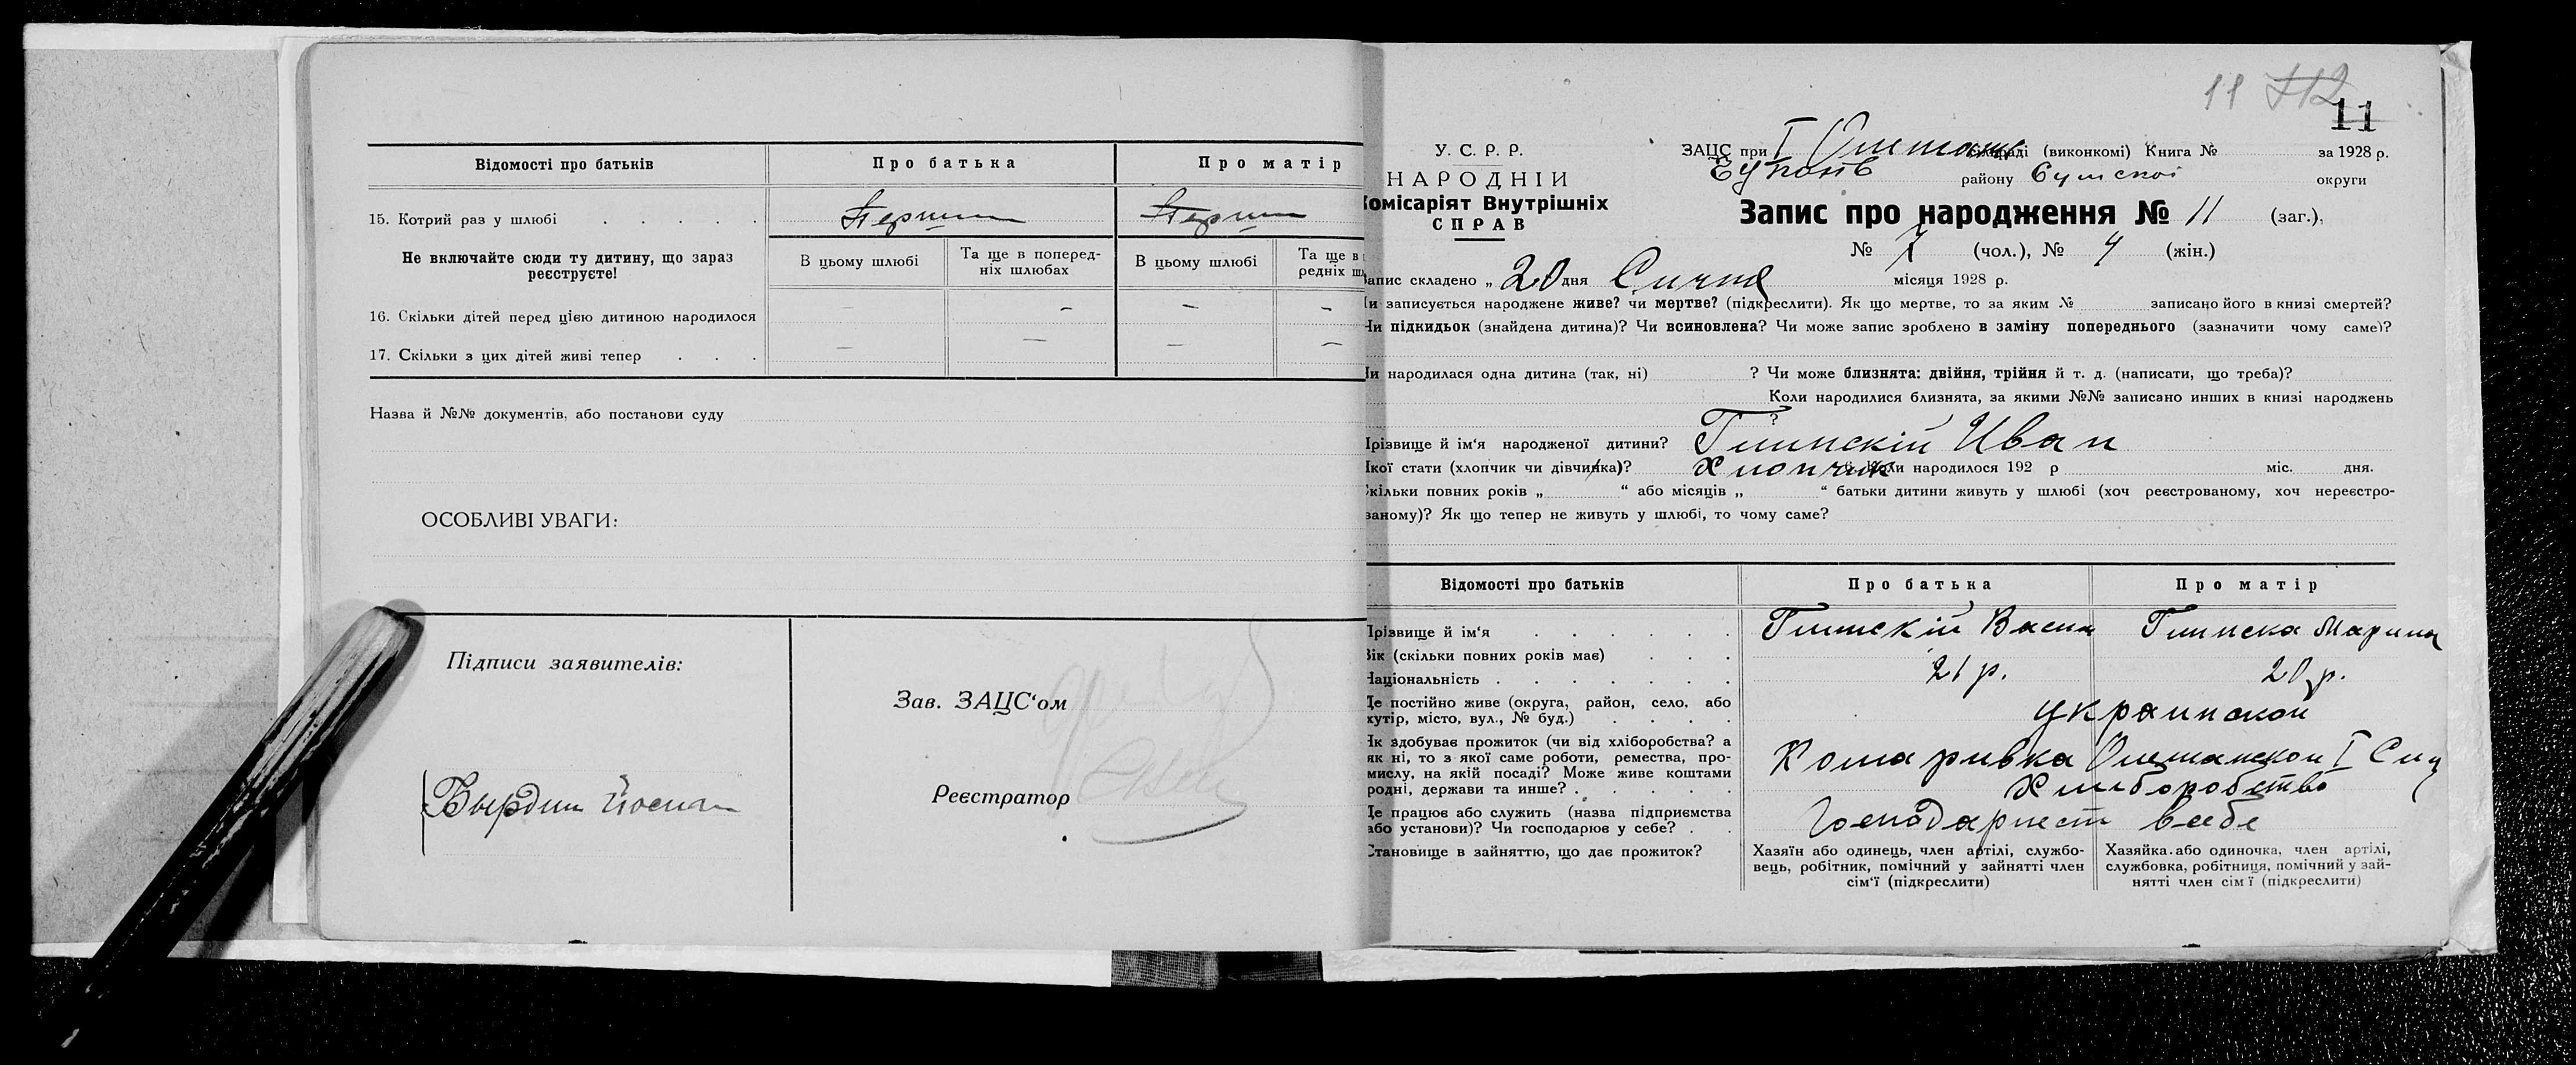 Відомості про батьків
Про батька
Про матір
15. Котрий раз у шлюбі
Перший
Перши
Не включайте сюди ту дитину, що зараз
реєструєте!
В цьому шлюбі
Та ще в поперед-
ніх шлюбах
В цьому шлюбі
Та ще в
редніх шл
16. Скільки дітей перед цією дитиною народилося
— — — —
17. Скільки з цих дітей живі тепер
— — — —
Назва й №№ документів, або постанови суду
ОСОБЛИВІ УВАГИ:
Підписи заявителів:
Зав. ЗАЦС‘ом
Реєстратор
11 112
11
У. С. Р. Р.
НАРОДНІЙ
Комісаріят Внутрішніх
СПРАВ
ЗАЦС при І (виконкомі) Книга № за 1928 р.
району Сумской округи
Запис про народження № 11 (заг.),
№ 7 (чол.), № 4 (жін.)
апис складено „ 20 дня Сичня місяця 1928 р.
и записується народжене живе? чи мертве? (підкреслити). Як що мертве, то за яким № записано його в книзі смертей?
Чи підкидьок (знайдена дитина)? Чи всиновлена? Чи може запис зроблено в заміну попереднього (зазначити чому саме)?
и народилася одна дитина (так, ні) ? Чи може близнята: двійня, трійня й т. д. (написати, що треба)?
Коли народилися близнята, за якими №№ записано инших в книзі народжень
?
Прізвище й ім‘я народженої дитини? Глинскій Иван
Якої стати (хлопчик чи дівчинка)? Хлопчик Коли народилося 192 р міс. дня.
кільки повних років „ “ або місяців „ “ батьки дитини живуть у шлюбі (хоч реєстрованому, хоч нереєстро-
ваному)? Як що тепер не живуть у шлюбі, то чому саме?
Відомості про батьків
Про батька
Про матір
Прізвище й ім‘я
Глинскій Васил
Глинска Марина
Вік (скільки повних років має)
21 р.
20 р.
Національність
украинской
Де постійно живе (округа, район, село, або
хутір, місто, вул., № буд.)
Комаривка
Як здобуває прожиток (чи від хліборобства? а
як ні, то з якої саме роботи, ремества, про-
мислу, на якій посаді? Може живе коштами
родні, держави та инше?
Хлиборобство
Де працює або служить (назва підприємства
або установи)? Чи господарює у себе?
в себе
Становище в зайняттю, що дає прожиток?
Хазяїн або одинець, член артілі, службо-
вець, робітник, помічний у зайнятті член
сім‘ї (підкреслити)
Хазяйка або одиночка, член артілі,
службовка, робітниця, помічний у зай-
нятті член сім‘ї (підкреслити)